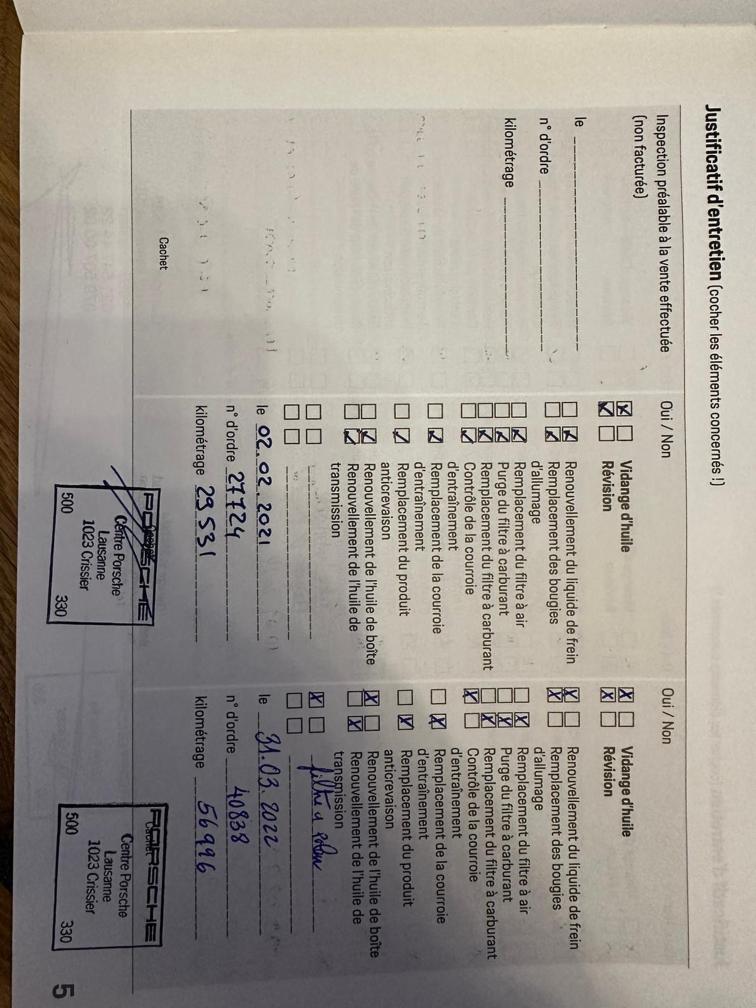 Justificatif d'entretien (cocher les éléments concernés !)
Inspection préalable à la vente effectuée
(non facturée)
le
n° d'ordre
kilométrage
Cachet
Oui / Non
Vidange d'huile
Révision
Renouvellement du liquide de frein
Remplacement des bougies
d'allumage
Remplacement du filtre à air
Purge du filtre à carburant
Remplacement du filtre à carburant
Contrôle de la courroie
d'entraînement
Remplacement de la courroie
d'entraînement
Remplacement du produit
anticrevaison
Renouvellement de l'huile de boîte
Renouvellement de l'huile de
transmission
le 02.02.2021
n° d'ordre 27724
kilométrage 29531
PORSCHE
Centre Porsche
Lausanne
1023 Crissier
500 330
Oui / Non
Vidange d'huile
Révision
Renouvellement du liquide de frein
Remplacement des bougies
d'allumage
Remplacement du filtre à air
Purge du filtre à carburant
Remplacement du filtre à carburant
Contrôle de la courroie
d'entraînement
Remplacement de la courroie
d'entraînement
Remplacement du produit
anticrevaison
Renouvellement de l'huile de boîte
Renouvellement de l'huile de
transmission
filtre
le 31.03.2022
n° d'ordre 40838
kilométrage 56996
PORSCHE
Centre Porsche
Lausanne
1023 Crissier
500 330
5